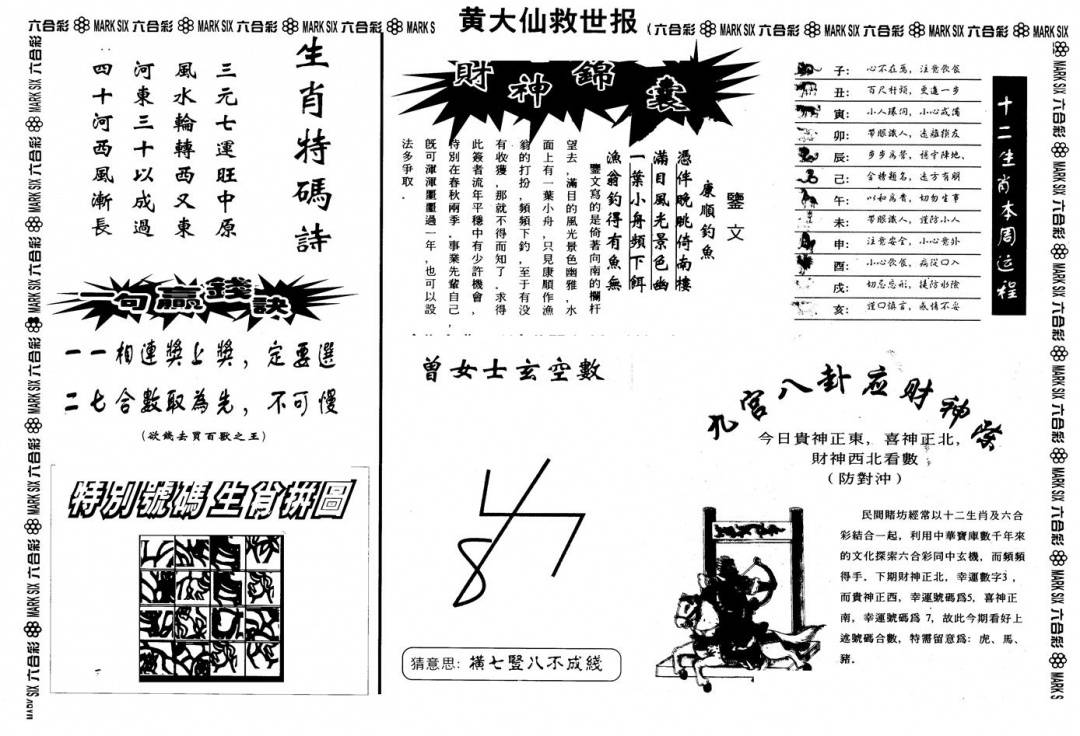 黄大仙救世报
六合彩 MARK SIX 六合彩 MARK SIX 六合彩 MARK SIX 六合彩 MARK S
(六合彩 MARK SIX 六合彩 MARK SIX 六合彩 MARK SIX 六合彩 MARK SIX 六合彩 MARK SIX
生肖特碼詩
三元七運旺中原
風水輪轉西又東
河東三十以成過
四十河西風漸長
一句贏錢訣
一一相連獎上獎，定要選
二七合數取為先，不可慢
(欲錢去買百獸之王)
特別號碼生肖拼圖
財神錦囊
鑒文
康順釣魚
憑伴晚眺倚南樓
滿目風光景色幽
一葉小舟頻下餌
漁翁釣得有魚無
鑒文寫的是倚著向南的欄杆
望去，滿目的風光景色幽雅，水
面上有一葉小舟，只見康順作漁
翁的打扮，頻頻下釣，至于有没
有收獲，那就不得而知了．求得
此簽者流年平穩中有少許機會，
特別在春秋兩季，事業先輩自己，
既可渾渾噩噩過一年，也可以設
法多爭取．
曾女士玄空數
猜意思: 橫七豎八不成綫
十二生肖本周运程
子: 心不在焉，注意飲食
丑: 百尺竿頭，更進一步
寅: 小人環伺，小心戒備
卯: 帶眼識人，遠離損友
辰: 步步為營，穩守陣地、
己: 金榜題名，遠方有朋
午: 以和為貴，切勿生事
未: 帶眼識人，謹防小人
申: 注意安全，小心意外
酉: 小心飲食，病從口入
戌: 切忌忘形，提防水險
亥: 謹口慎言，感情不妥
九宮八卦应财神
今日貴神正東，喜神正北，
財神西北看數
(防對沖)
民間賭坊經常以十二生肖及六合
彩結合一起，利用中華寶庫數千年來
的文化探索六合彩同中玄機，而頻頻
得手．下期財神正北，幸運數字3，
而貴神正西，幸運號碼爲5，喜神正
南，幸運號碼爲 7，故此今期看好上
述號碼合數，特需留意爲：虎、馬、
豬．